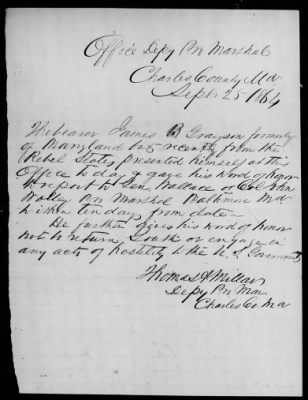 Office Depy Pro Marshal
Charles County Md
Sept 25 1864
The bearer James B Grayson formerly
of Maryland but recently from the
Rebel States, presented himself at this
Office to day & gave his word of honor
to report to Gen. Wallace or Col John
Wolley Pro Marshal Baltimore Md
within ten days from date—
He further gives his word of honor
not to return South or engage in
any acts of hostility to the U.S. Government
Thomas A Millar
Depy Pro Mar
Charles Co Md